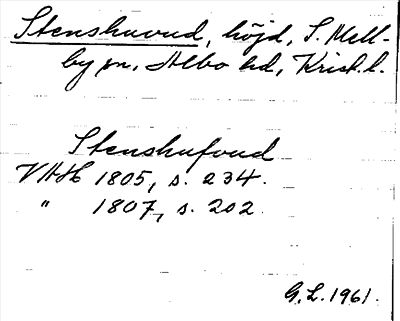 Stenshuvud, höjd, S. Mell-
by sn, Albo hd, Krist. l.
Stenshufvud
VAH 1805, s. 234.
" 1807, s. 202
G. L. 1961.